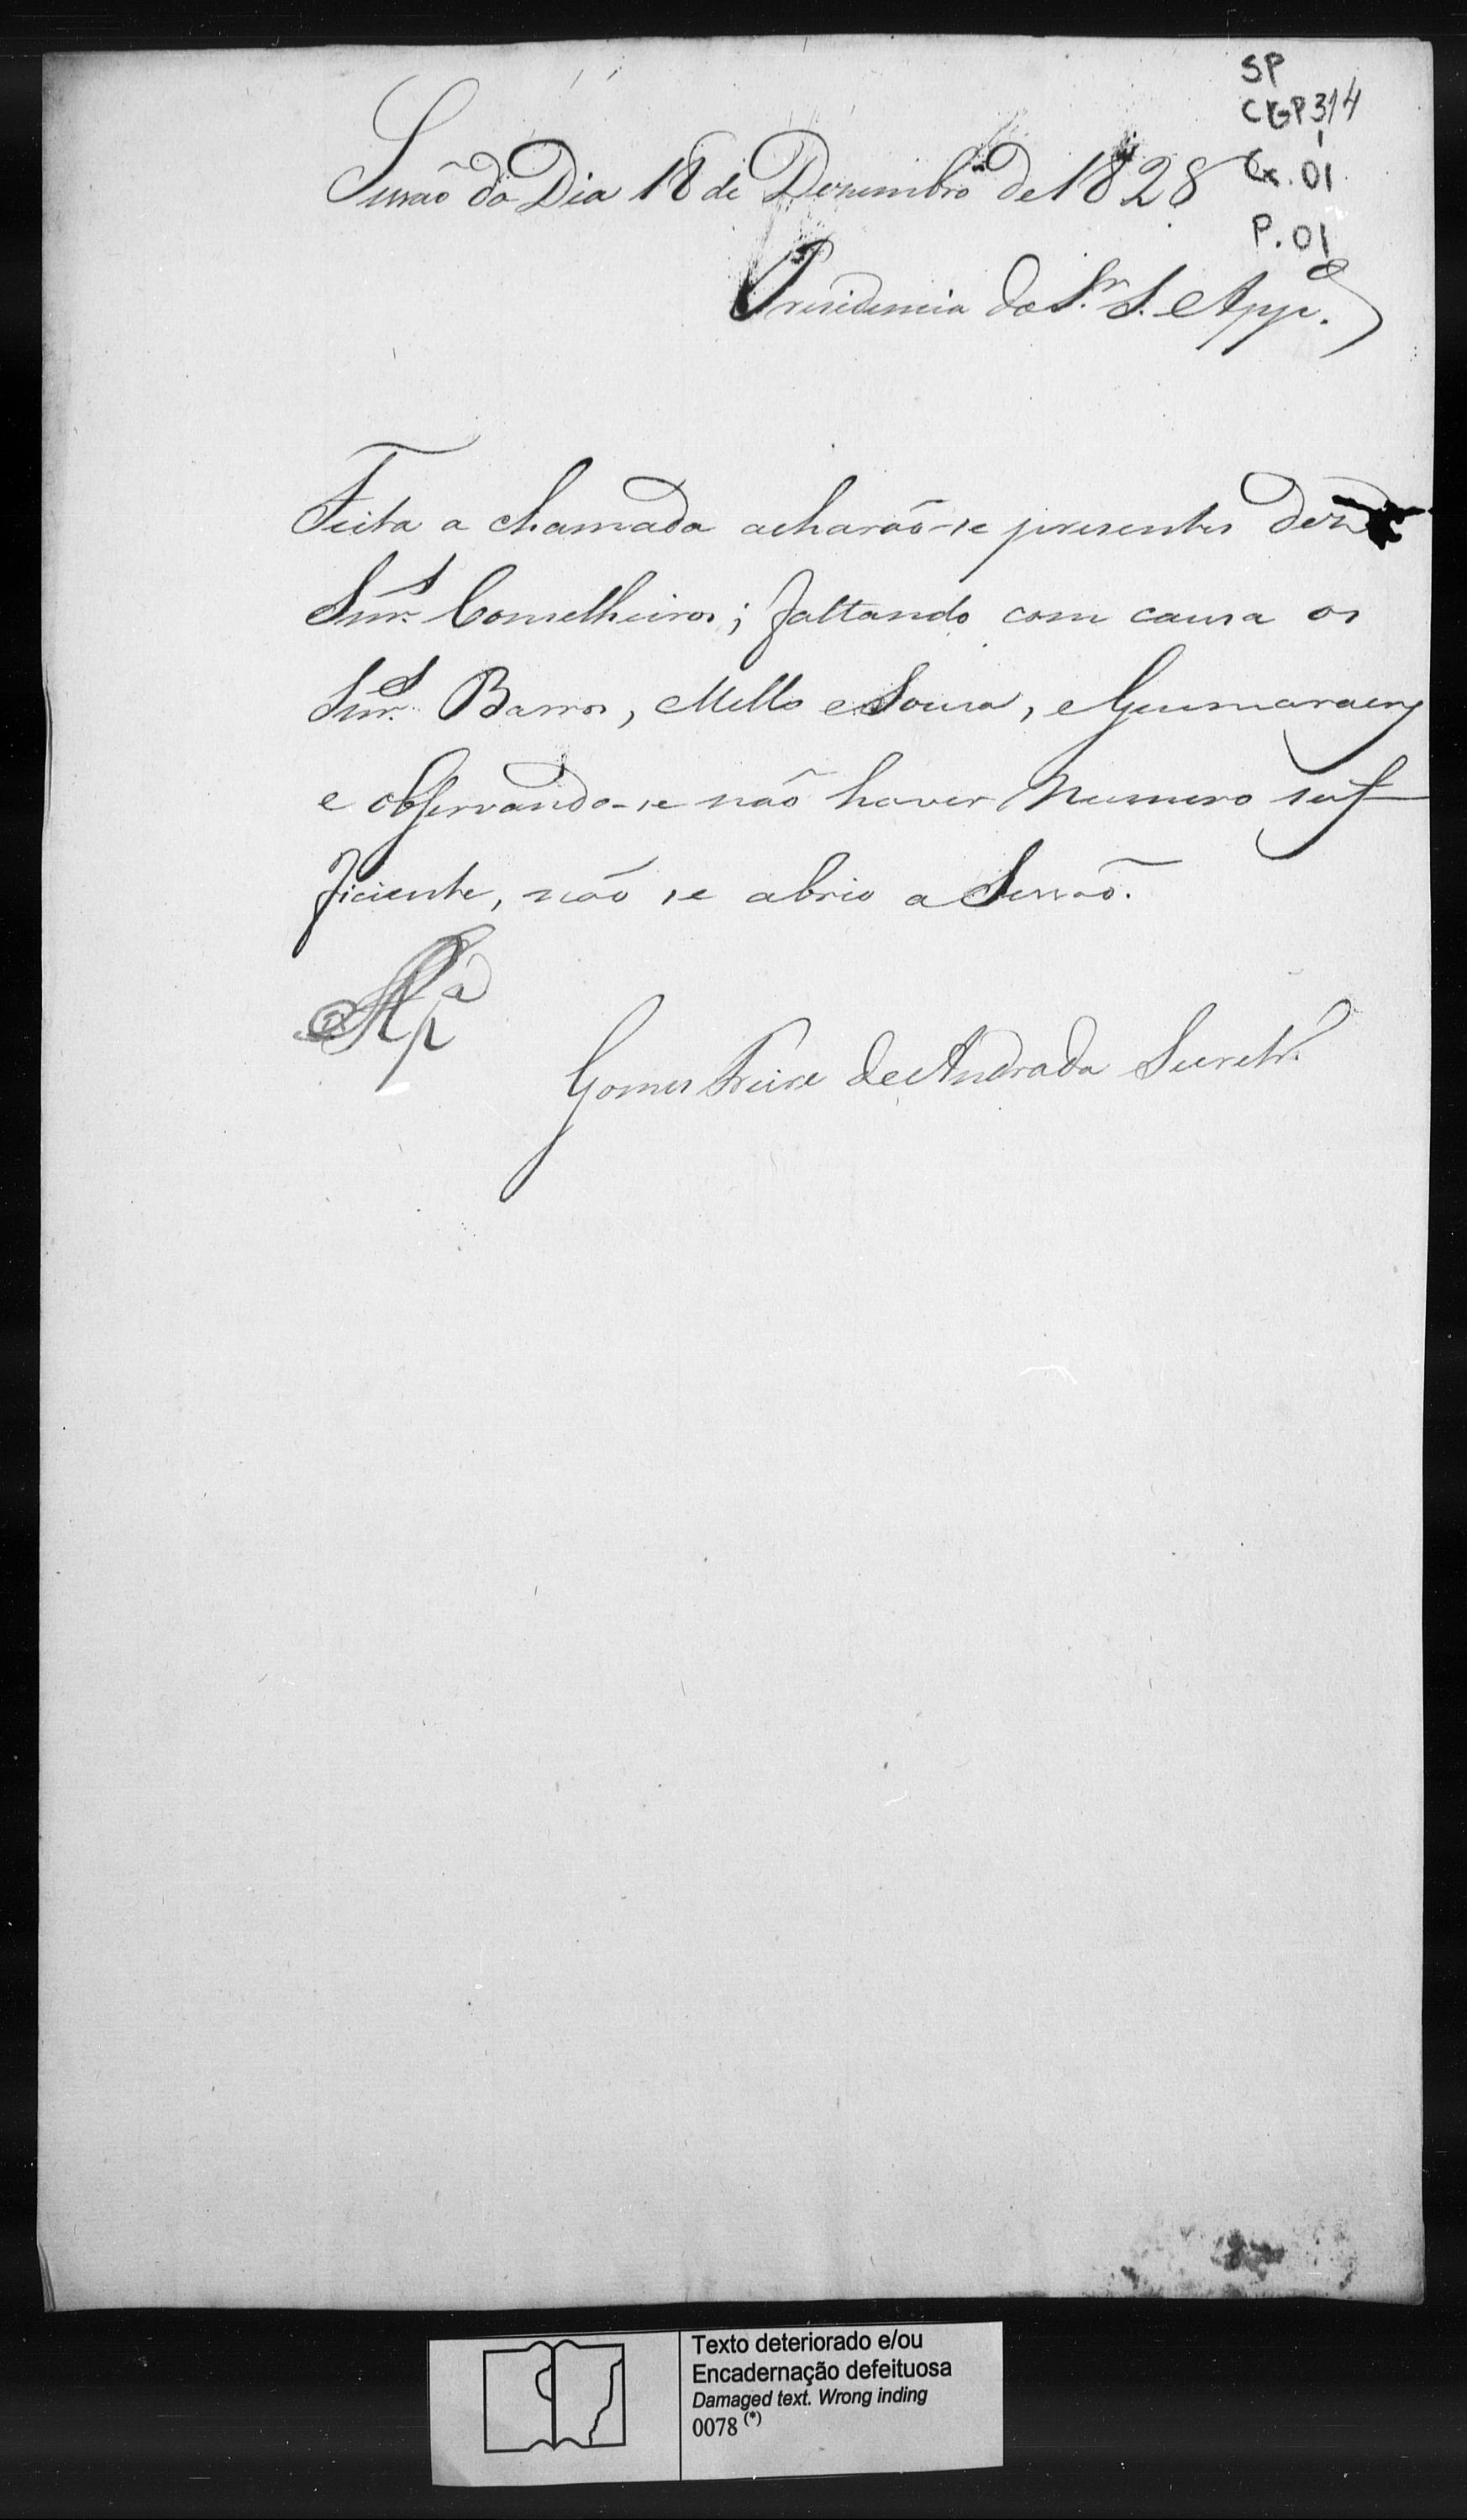 SP
CGP 3/4
Cx. 01
P. 01
Sessaõ do Dia 18 de Dezembro de 1828
Presidencia do Sr. S. App.
Feita a chamada acharão-se presentes dez
Snrs. Conselheiros; faltando com causa os
Snrs. Barros, Mello e Sousa, e Guimaraens
e observando-se naõ haver Numero suf-
ficiente, não se abrio a Sessaõ.
Gomes Freire de Andrada Secretr.
Texto deteriorado e/ou
Encadernação defeituosa
Damaged text. Wrong inding
0078 (*)